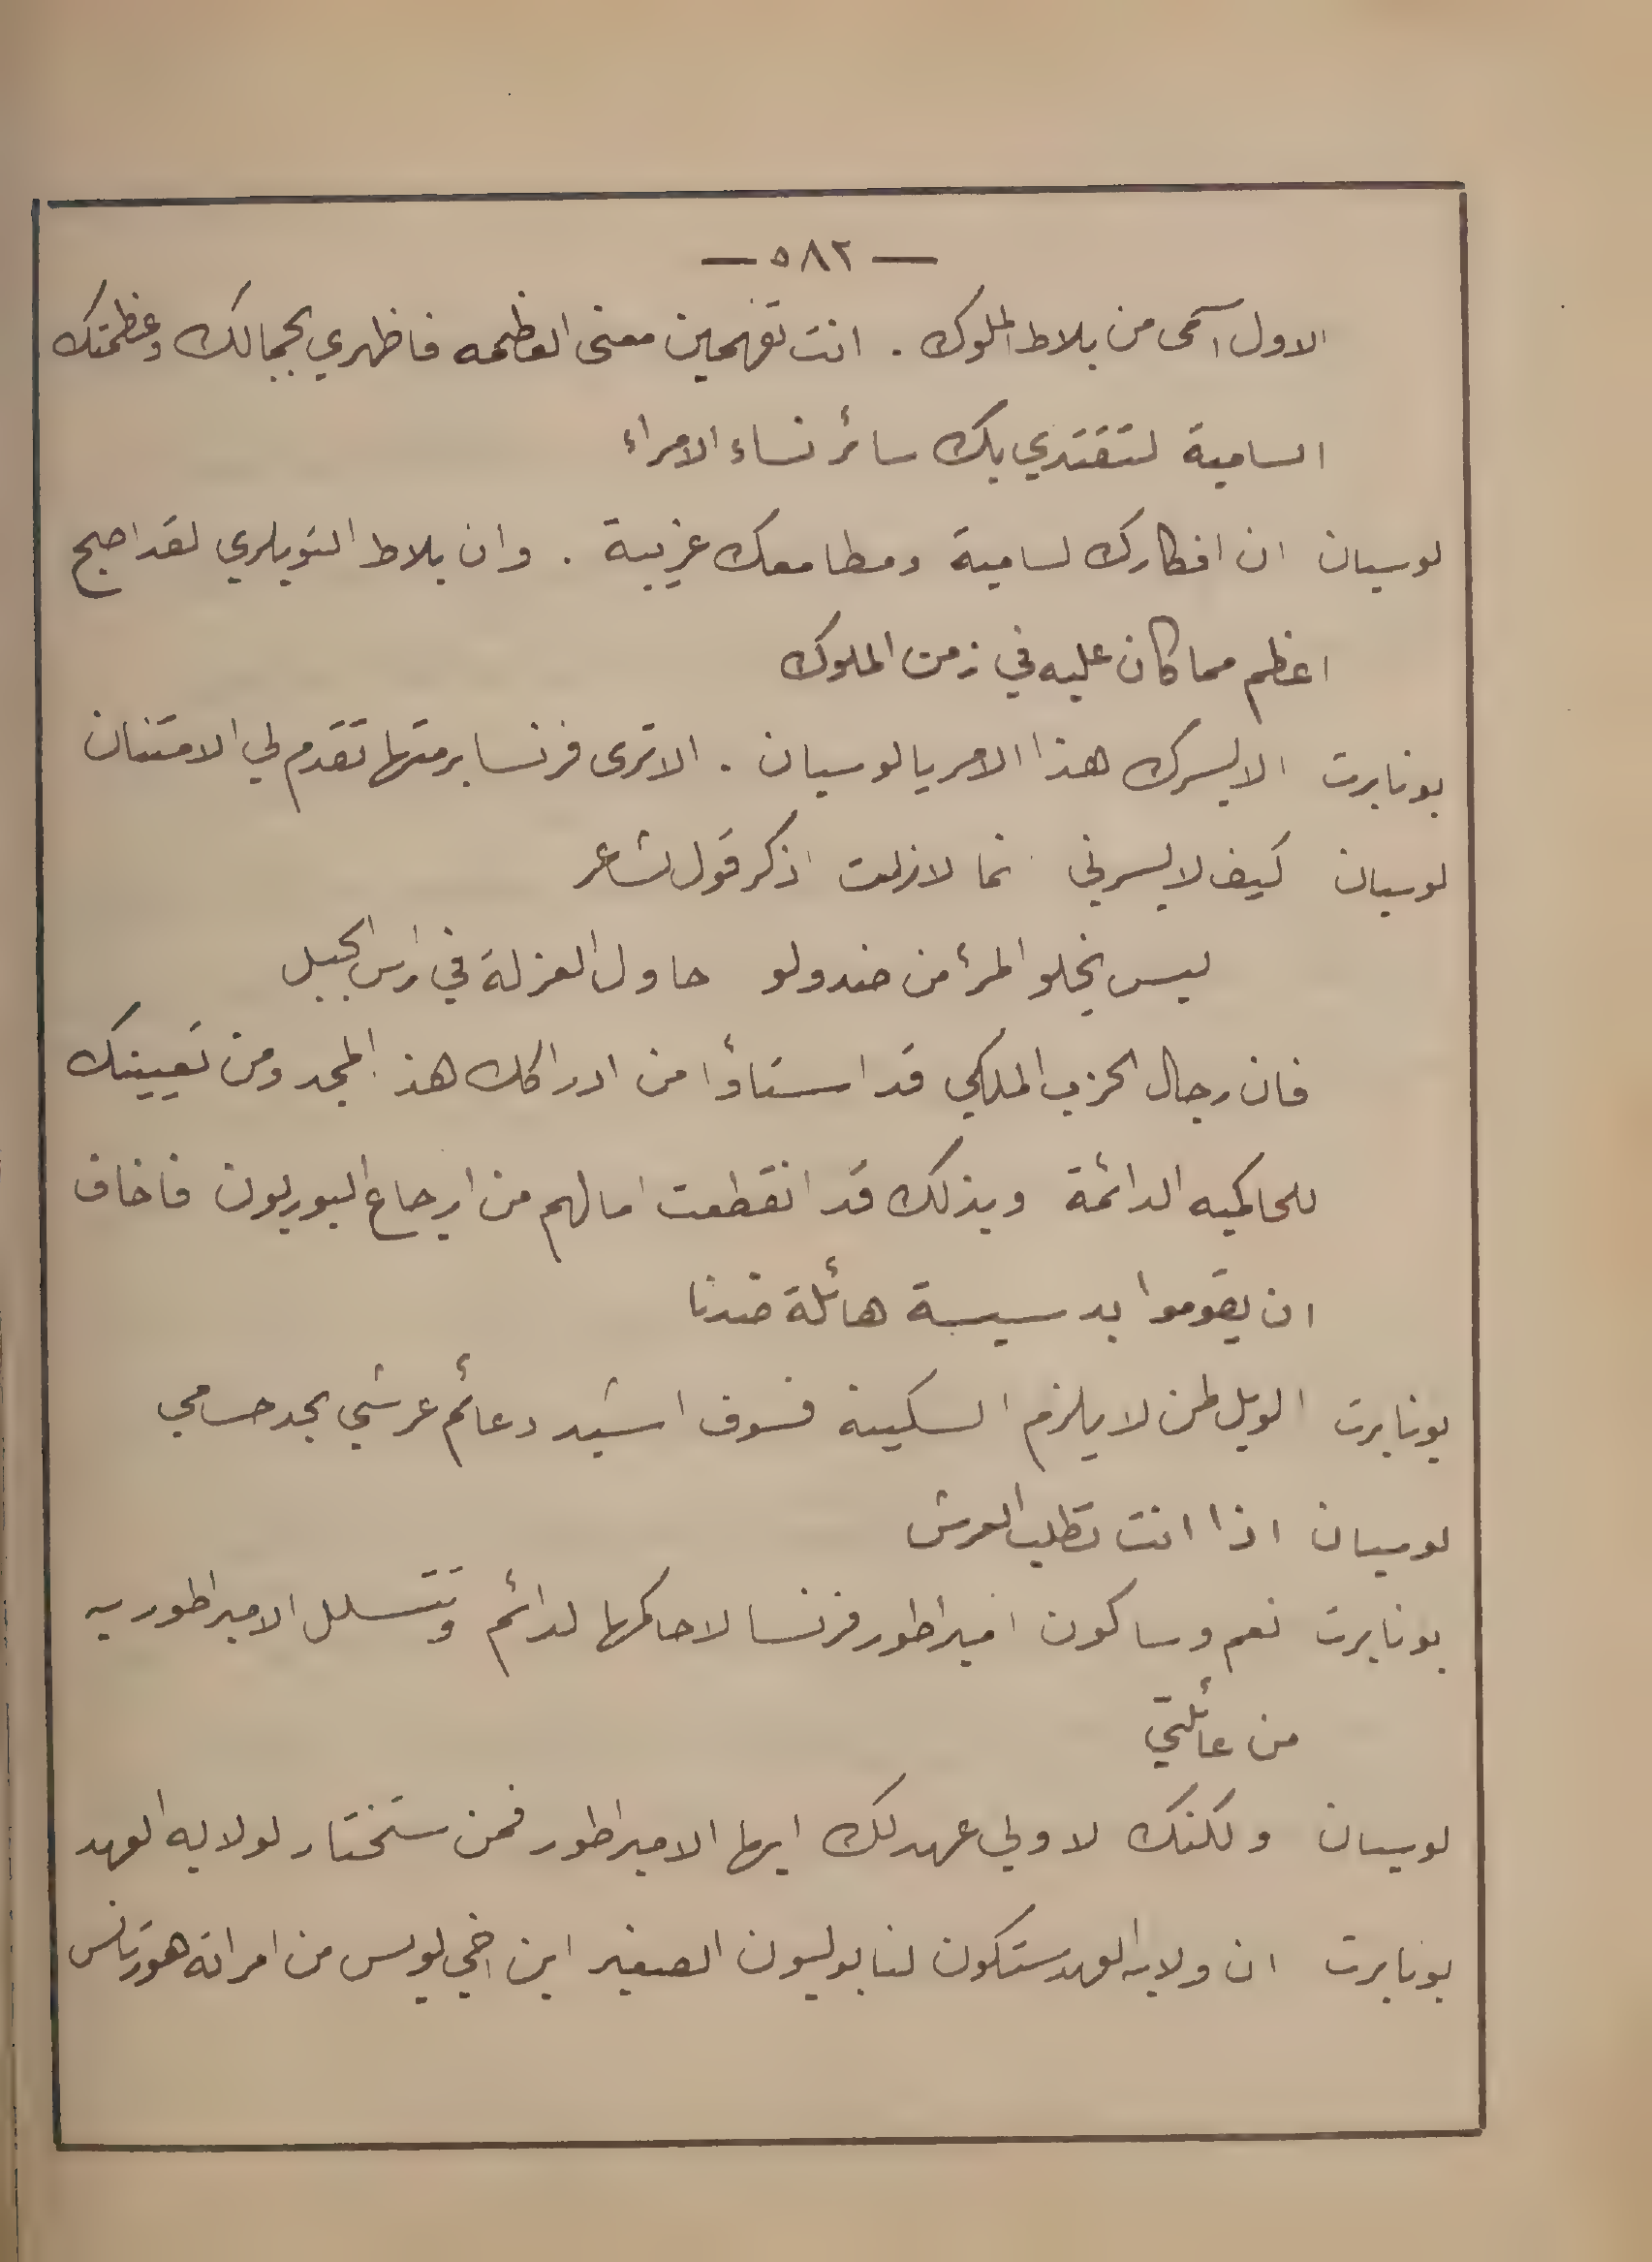 — ٥٨٢ —
الاول اسمى من بلاط الملوك . انت تفهمين معنى العظمه فاظهري بجمالك وعظمتك
السامية لتقتدي بك سائر نساء الامراء
لوسيان ان افكارك لسامية ومطامعك غريبة . وان بلاط التويلري لقد اصبح
اعظم مما كان عليه في زمن الملوك
بونابرت الا يسرك هذا الامر يا لوسيان . الا ترى فرنسا برمتها تقدم لي الامتنان
لوسيان كيف لا يسرني انما لا زلت اذكر قول الشاعر
ليس يخلو المرء من ضد ولو حاول العزلة في رأس الجبل
فان رجال الحزب الملكي قد استاؤا من ادراكك هذا المجد ومن تعيينك
للحاكميه الدائمة وبذلك قد انقطعت امالهم من ارجاع البوربون فاخاف
ان يقوموا بدسيسة هائلة ضدنا
بونابرت الويل لمن لا يلزم السكينة فسوف اشيد دعائم عرشي بحد حسامي
لوسيان اذا انت تطلب العرش
بونابرت نعم وساكون امبراطور فرنسا لا حاكمها الدائم وتتسلل الامبراطوريه
من عائلتي
لوسيان ولكنك لا ولي عهد لك ايها الامبراطور فمن ستختار لولايه العهد
بونابرت ان ولايه العهد ستكون لنابوليون الصغير ابن اخي لويس من امراته هورتانس